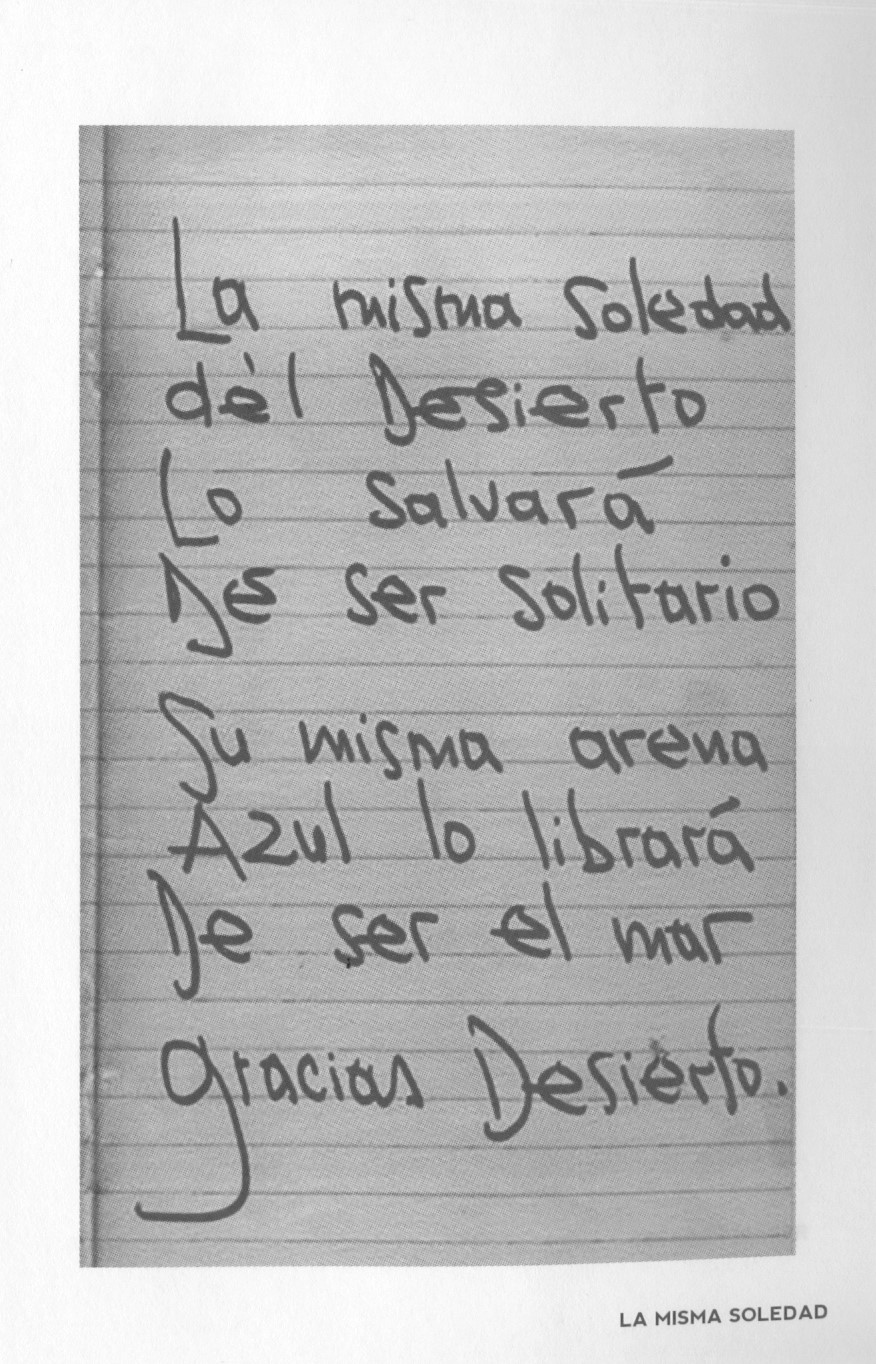 La misma Soledad
del Desierto
Lo Salvará
De Ser Solitario
Su misma arena
Azul lo librará
De ser el mar
gracias Desierto.
LA MISMA SOLEDAD